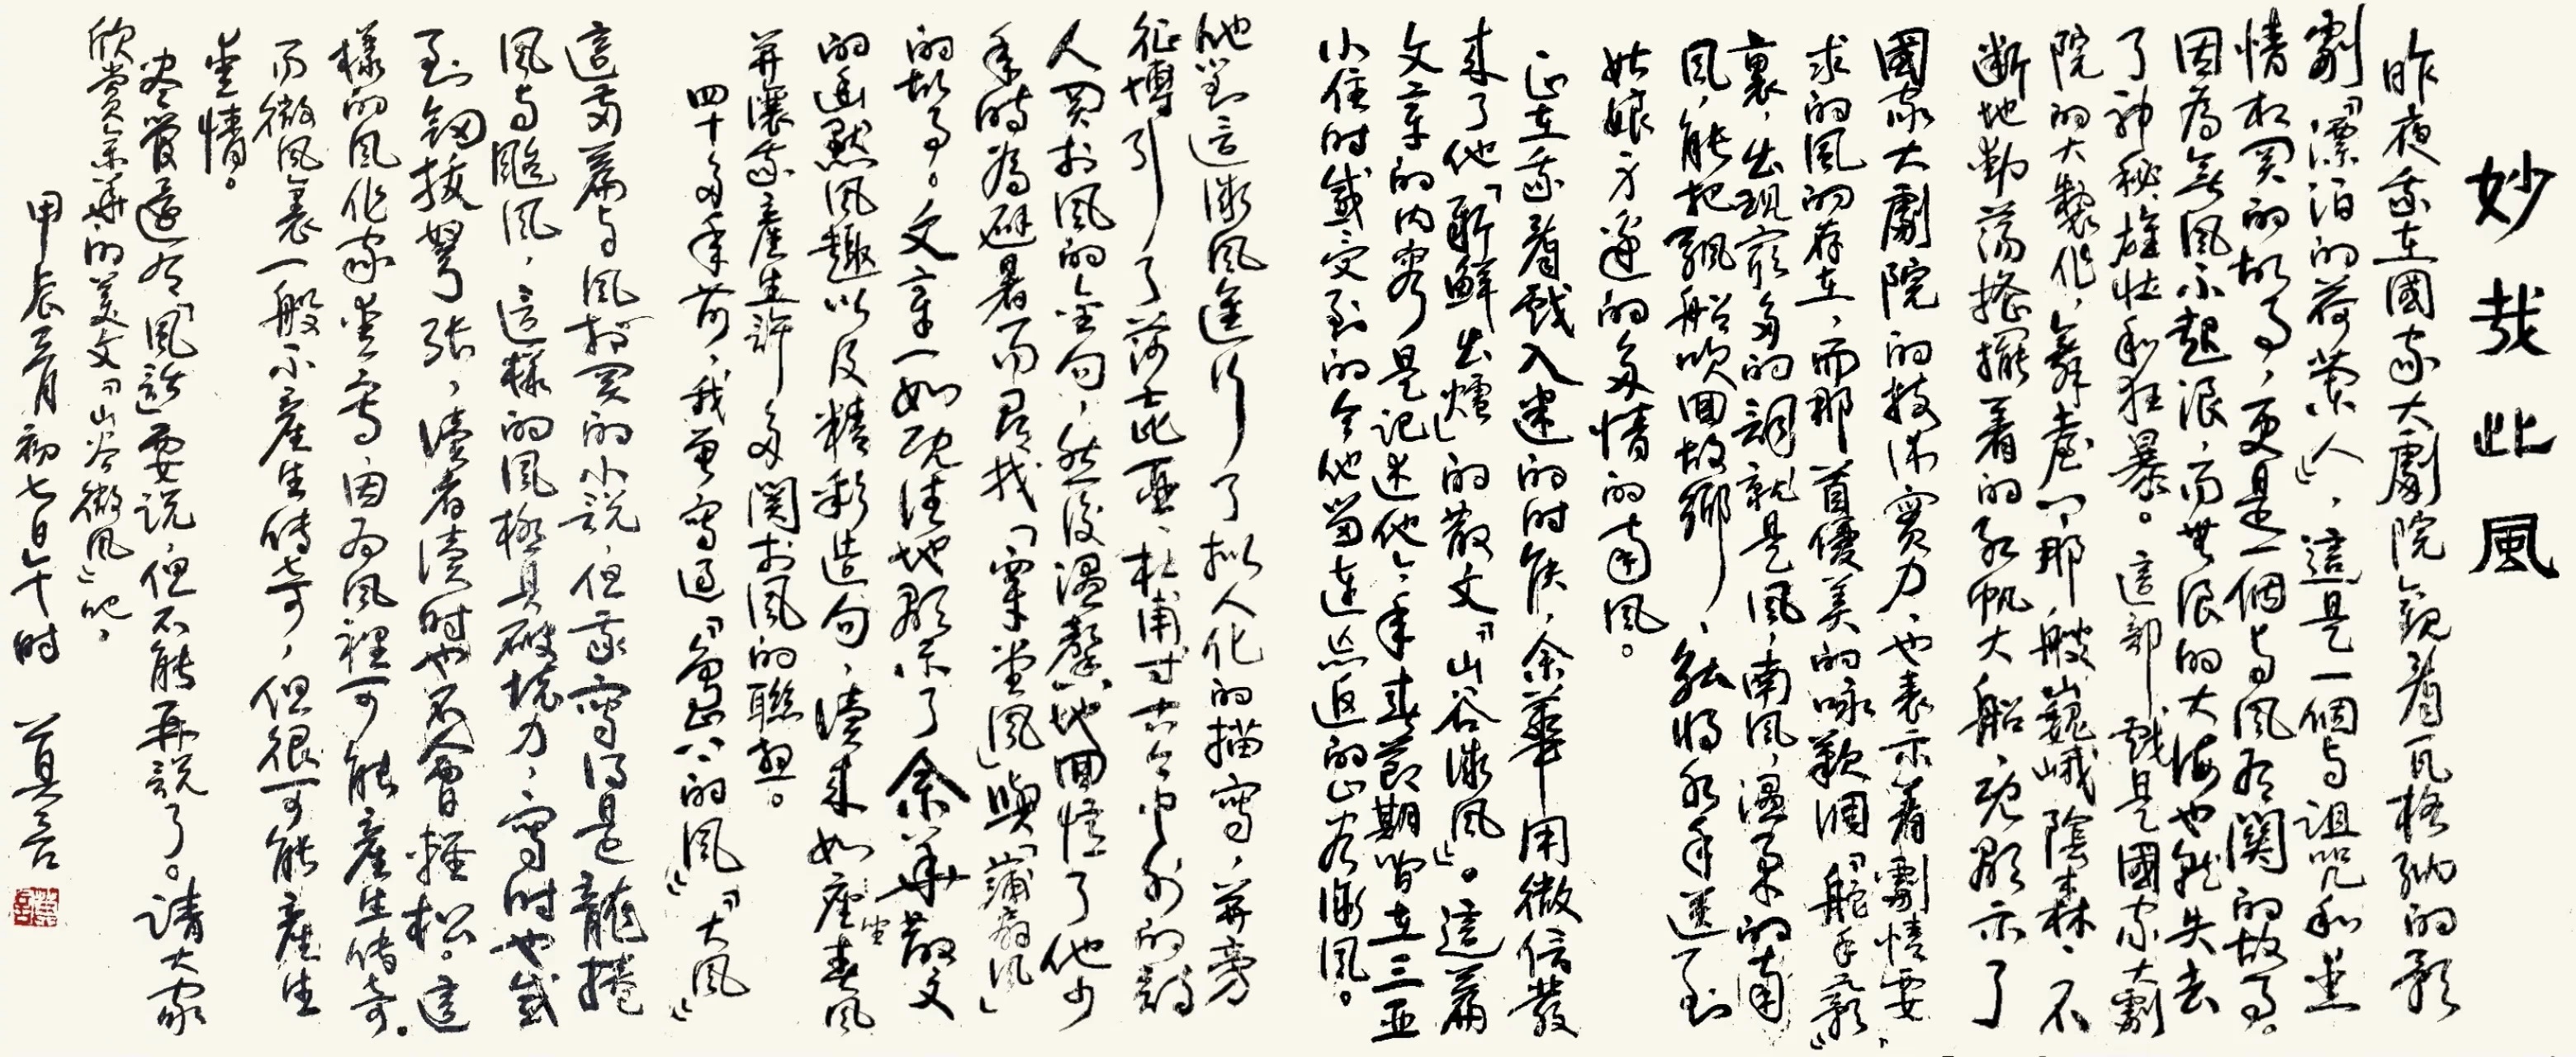 妙哉此風
昨夜我在國家大劇院觀看瓦格納的歌
劇『漂泊的荷蘭人』，這是一個与詛咒和愛
情相関的故事，更是一個与風有関的故事。
因為無風不起浪，而無浪的大海也就失去
了神秘雄壯和狂暴。這部戲是國家大劇
院的大製作，舞臺上那艘巍峨陰森、不
斷地動蕩搖擺着的紅帆大船，既顯示了
國家大劇院的技术實力，也表示着劇情要
求的風的存在，而那首優美的咏歎調『舵手之歌』
裏，出現最多的詞就是風，南風，温柔的南
風，能把飄船吹回故鄉，能將水手送到
姑娘身邊的多情的南風。
正在我看戲入迷的时候，余華用微信發
来了他「新鮮出爐」的散文『山谷微風』。這篇
文章的内容是記述他今年春節期間在三亞
小住时感受到的令他留連忘返的山谷微風。
他對這微風進行了拟人化的描寫，并旁
征博引了莎士比亞、杜甫等古今中外的詩
人関於風的金句，然後温馨地回憶了他少
年時為避暑而尋找「穿堂風」與「蒲扇風」
的故事。文章一如既往地顯示了余華散文
的幽默風趣以及精彩造句，讀来如坐春風
并讓我產生許多関於風的聯想。
四十多年前，我曾寫過『島上的風』『大風』
這两篇与風相関的小説，但我寫的是龍捲
風与颶風，這樣的風極具破坏力，寫时也感
到劍拔弩張，讀者讀时也不會輕松。這
樣的風作家愛寫，因为風裡可能產生傳奇。
而微風裏一般不產生傳奇，但很可能產生
愛情。
尽管還有『風』話要説，但不能再説了。請大家
欣賞余華的美文『山谷微風』吧。
甲辰三月初七日午时 莫言
莫言